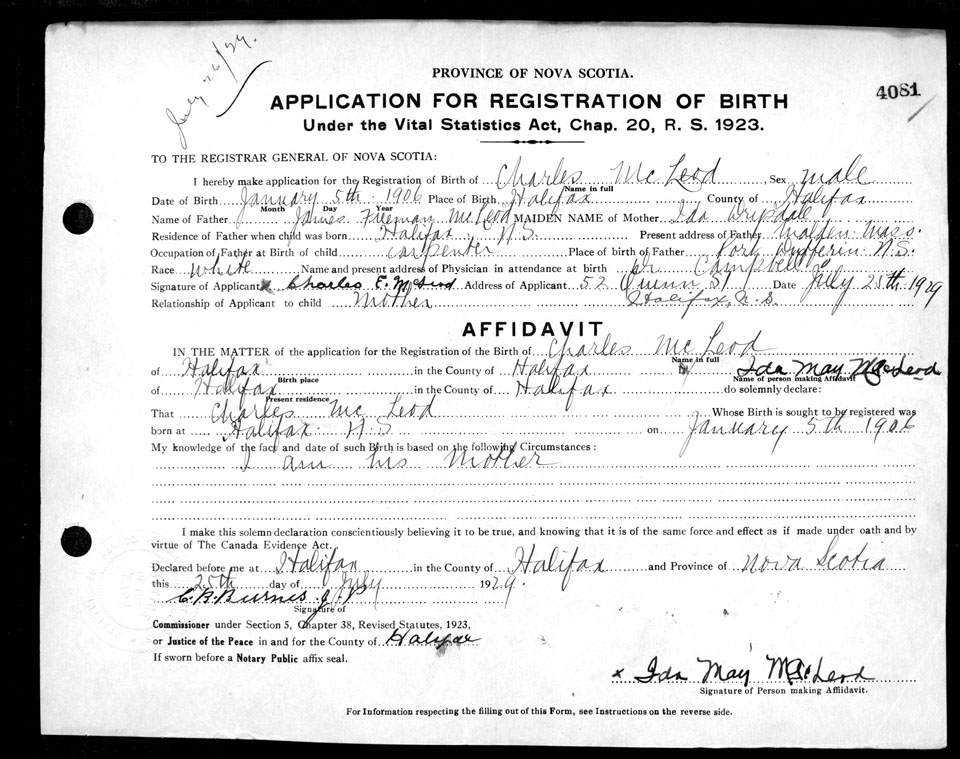 July 26/29.
PROVINCE OF NOVA SCOTIA.
4081
APPLICATION FOR REGISTRATION OF BIRTH
Under the Vital Statistics Act, Chap. 20, R. S. 1923.
TO THE REGISTRAR GENERAL OF NOVA SCOTIA:
I hereby make application for the Registration of Birth of Charles Mc Leod, Sex male
Name in full
Date of Birth January 5th 1906 Place of Birth Halifax County of Halifax
Month Day Year
Name of Father James Freeman McLeod MAIDEN NAME of Mother Ida Drysdale
Residence of Father when child was born Halifax N.S. Present address of Father Malden Mass.
Occupation of Father at Birth of child carpenter Place of birth of Father Port Dufferin N.S.
Race White Name and present address of Physician in attendance at birth Dr Campbell
Signature of Applicant x Charles E. McLeod Address of Applicant 52 Quinn St Date July 25th 1929
Relationship of Applicant to child Mother Halifax, N.S.
AFFIDAVIT
IN THE MATTER of the application for the Registration of the Birth of Charles Mc Leod
Name in full
of Halifax in the County of Halifax Ida May McLeod
Birth place Name of person making Affidavit
of Halifax in the County of Halifax do solemnly declare:
Present residence
That Charles Mc Leod Whose Birth is sought to be registered was
born at Halifax N.S on January 5th 1906
My knowledge of the fact and date of such Birth is based on the following Circumstances:
I am his Mother
I make this solemn declaration conscientiously believing it to be true, and knowing that it is of the same force and effect as if made under oath and by
virtue of The Canada Evidence Act.
Declared before me at Halifax in the County of Halifax and Province of Nova Scotia
this 25th day of July 1929.
C. B. Burns J.P
Signature of
Commissioner under Section 5, Chapter 38, Revised Statutes, 1923,
or Justice of the Peace in and for the County of Halifax
If sworn before a Notary Public affix seal.
x Ida May McLeod
Signature of Person making Affidavit.
For Information respecting the filling out of this Form, see Instructions on the reverse side.